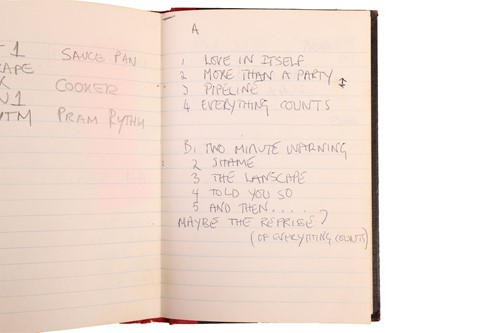 - 1 SAUCE PAN
APE
X COOKER
N1
TM PRAM RYTHM
A
1 LOVE IN ITSELF
2 MORE THAN A PARTY
3 PIPELINE
4 EVERYTHING COUNTS
B1 TWO MINUTE WARNING
2 SHAME
3 THE LANSCAPE
4 TOLD YOU SO
5 AND THEN.....
MAYBE THE REPRISE?
(OF EVERYTHING COUNTS)